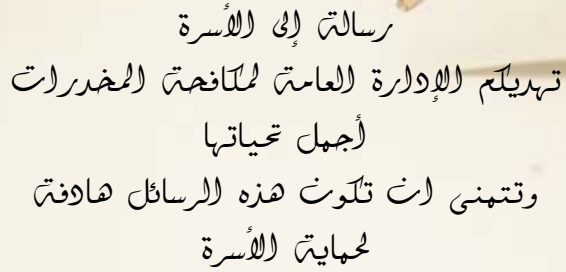 رسالة إلى الأسرة
تهديكم الإدارة العامة لمكافحة المخدرات
أجمل تحياتها
وتتمنى ان تكون هذه الرسائل هادفة
لحماية الأسرة